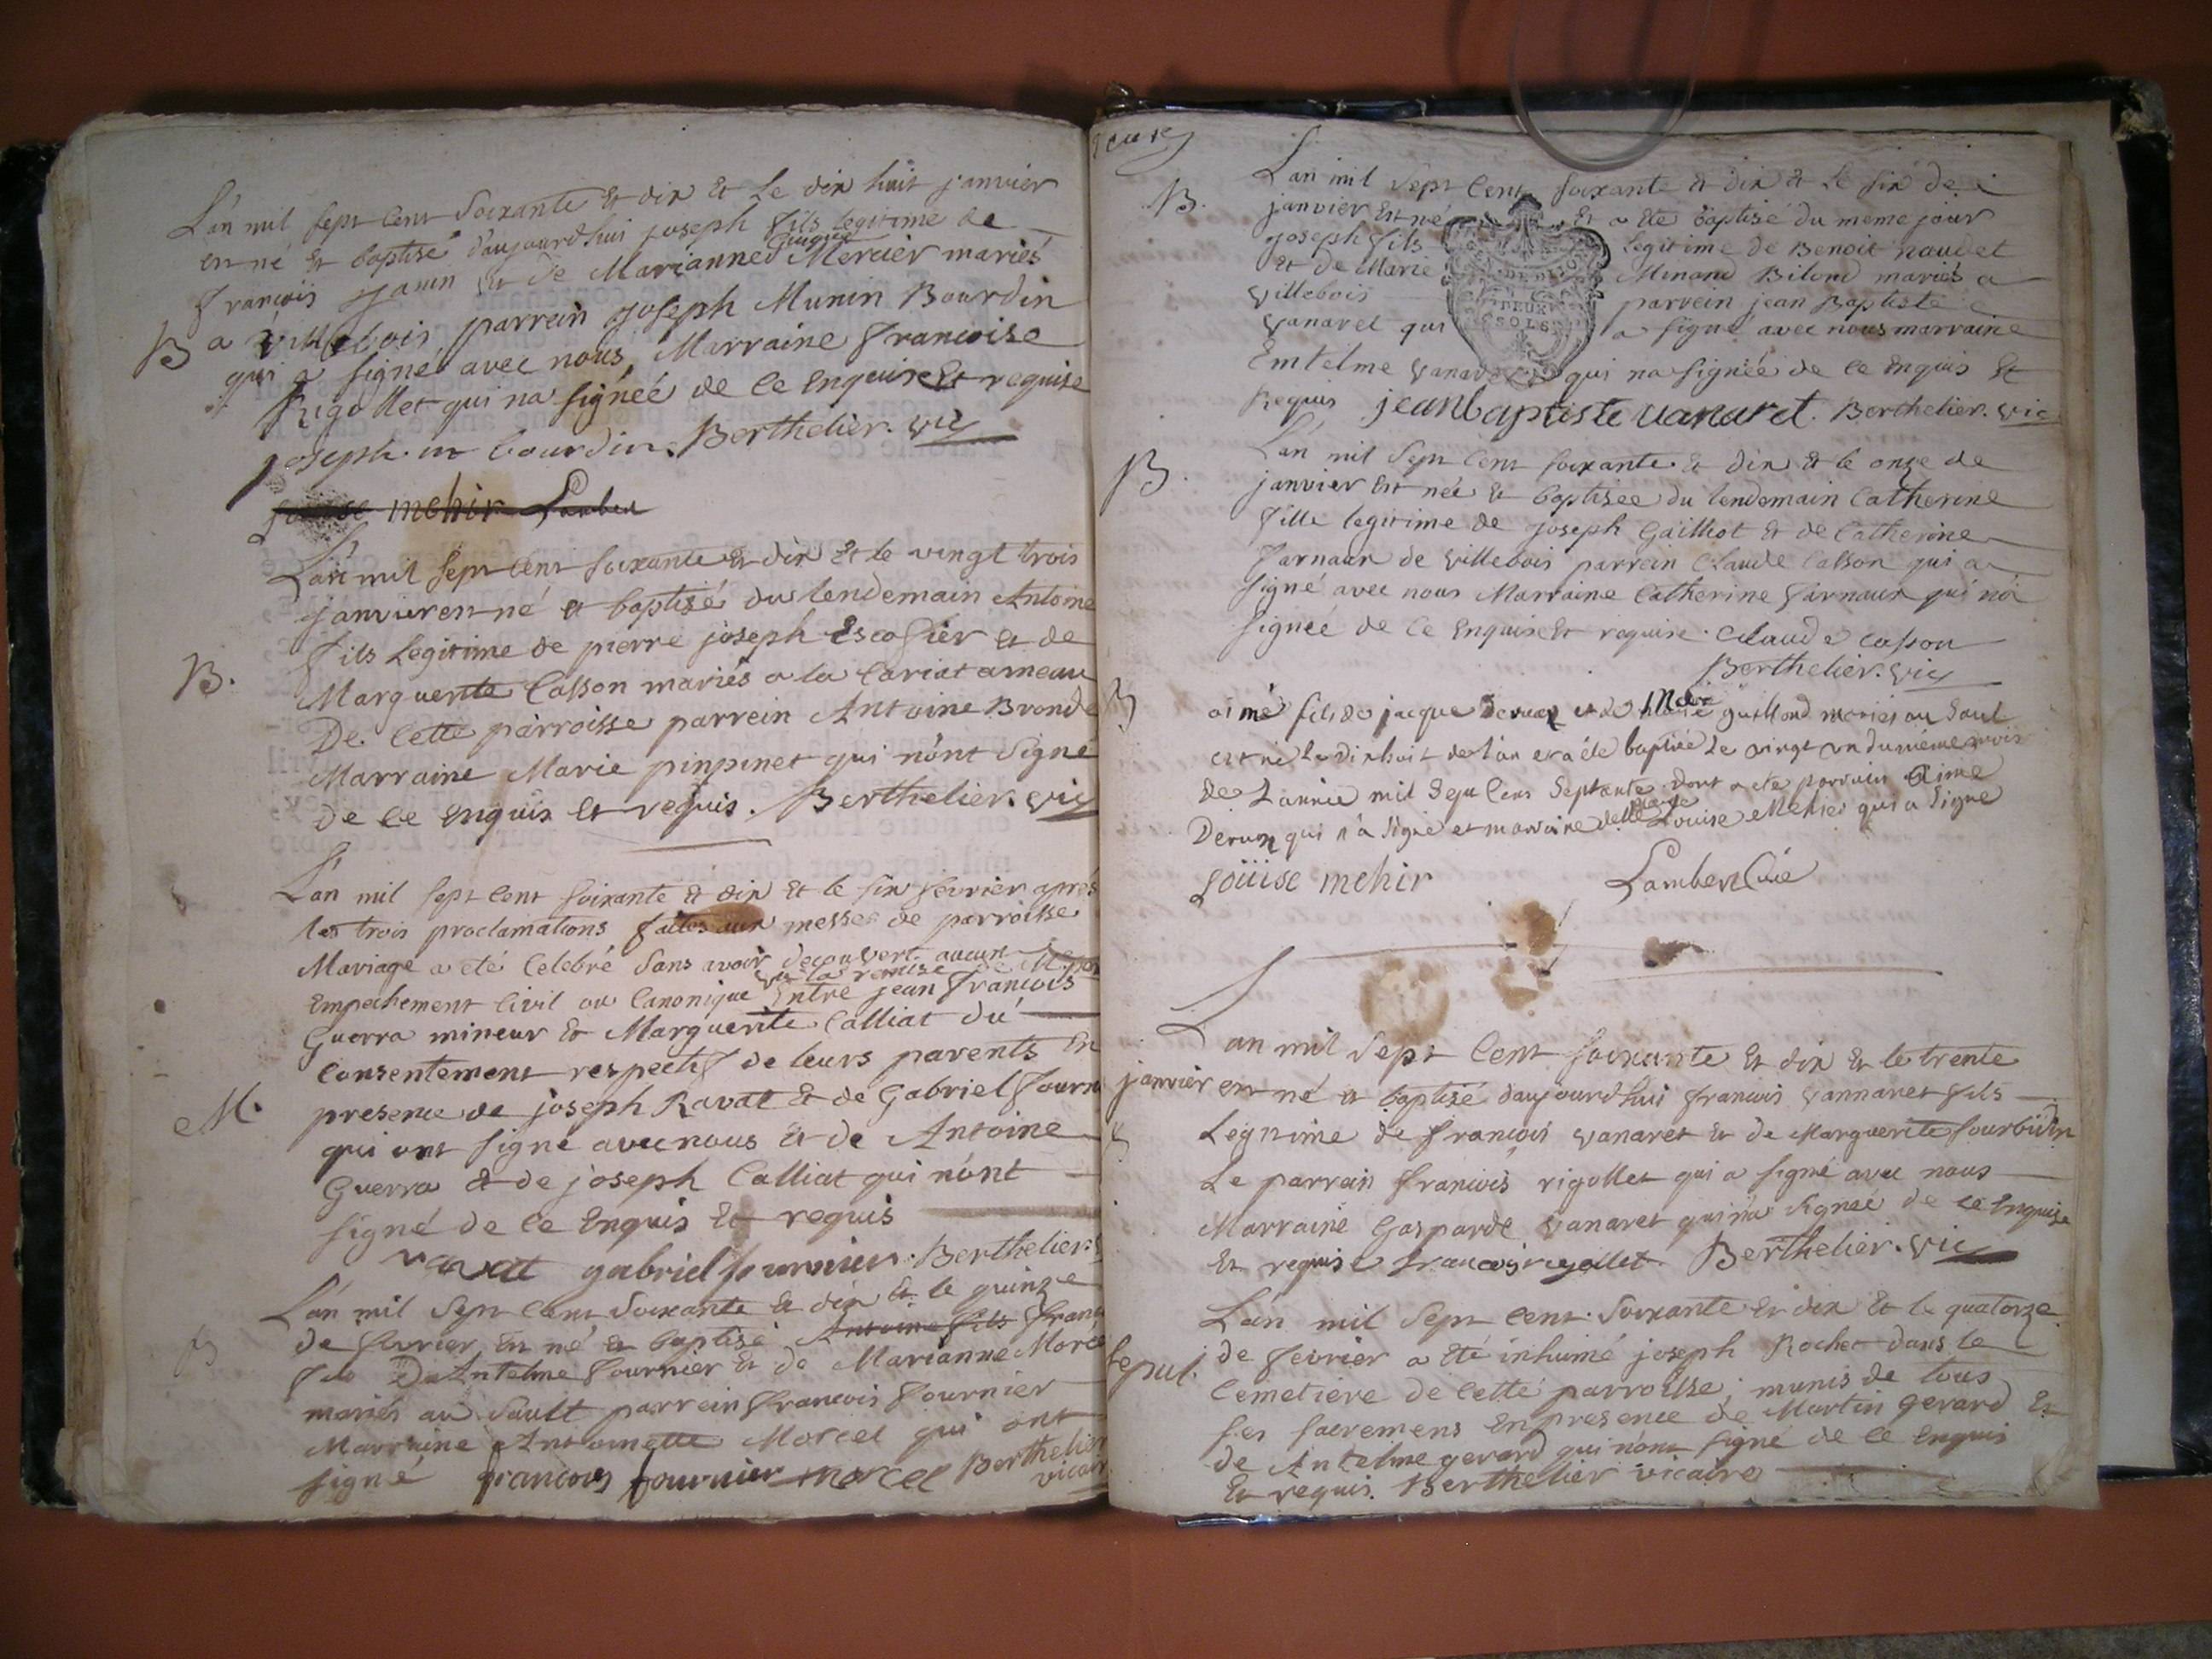 L'an mil sept cent soixante et dix et le dix huit janvier
est né et baptisé d'aujourdhui joseph fils legitime de
françois janin et de Marianne Mercier mariés
B
a villebois, parrein joseph Munin Bourdin
qui a signé avec nous, Marraine francoise
Rigollet qui na signéé de ce enquise et requise
joseph m bourdin. Berthelier. vic
mehir Lambert
L'an mil sept cent soixante et dix et le vingt trois
janvier est né et baptisé du lendemain Antoine
fils legitime de pierre joseph Escofier et de
B.
Marguerite Casson mariés a la Cariat ameau
De cette parroisse parrein Antoine Brond
Marraine Marie pinpinet qui n'ont signé
de ce enquis et requis. Berthelier. vic
L'an mil sept cent soixante et dix et le six fevrier aprés
les trois proclamations faites aux messes de parroisse
Mariage a eté celebré sans avoir decouvert aucun
vu la remise de
Empechement civil ou canonique Entre jean françois
Guerra mineur et Marguerite Calliat du
consentement respectif de leurs parents En
M.
presence de joseph Ravat et de Gabriel fourn
qui ont signé avec nous et de Antoine
Guerra et de joseph Calliat qui n'ont
signé de ce Enquis et requis
ravat gabriel fournier. Berthelier.
L'an mil sept cent soixante et dix et le quinze
de fevrier est né et baptisé Antoine fils fran
B
fils D'Antelme fournier et de Marianne Morce
mariés au Sault parrein francois fournier
Marraine Antoinette Morcel qui ont
signé francois fournier morcel Berthelier
vicair
L'an mil sept cent soixante et dix et le six de
B.
janvier est né et a été baptisé du meme jour
joseph fils legitime de Benoit naudet
DEUX
SOLS
et de Marie Minand Bilond mariés a
villebois parrein jean Baptiste
vanaret qui a signé avec nous marraine
Emtelme vanaret qui na signéé de ce enquis et
Requis jeanbaptiste vanaret. Berthelier. vic
L'an mil sept cent soixante et dix et le onze de
B.
janvier est née et baptisée du lendemain Catherine
fille legitime de joseph Gailliot et de Catherine
farnaux de villebois parrein Claude Casson qui a
signé avec nous Marraine Catherine farnaux qui n'a
signéé de ce enquise et requise. Claude casson
Berthelier. vic
B
aimé fils de jacque deruaz et de Marie guillond mariés au Saul
est né le dixhuit de l'an et a été baptisé Le vingt un du même mois
de L'année mil sept cens septante dont a ete parrain Aimé
Deruaz qui n'a signé et marraine delle Louise Mehier qui a signé
Loüise mehir Lambert Curé
L'an mil sept cent soixante et dix et le trente
janvier est né et baptisé daujourdhui francois vannaret fils
Legitime de françois vanaret et de Marguerite fourbidin
Le parrein francois rigollet qui a signé avec nous
Marraine Gasparde vanaret qui n'a signéé de ce enquise
et requise francois rigollet. Berthelier. vic
L'an mil sept cent soixante et dix et le quatorze
sepul.
de fevrier a eté inhumé joseph Rochet dans le
cemetiere de cette parroisse, munis de tous
ses sacremens en presence de Martin gerard et
de Antelme gerard qui n'ont signé de ce Enquis
et requis. Berthelier vicaire